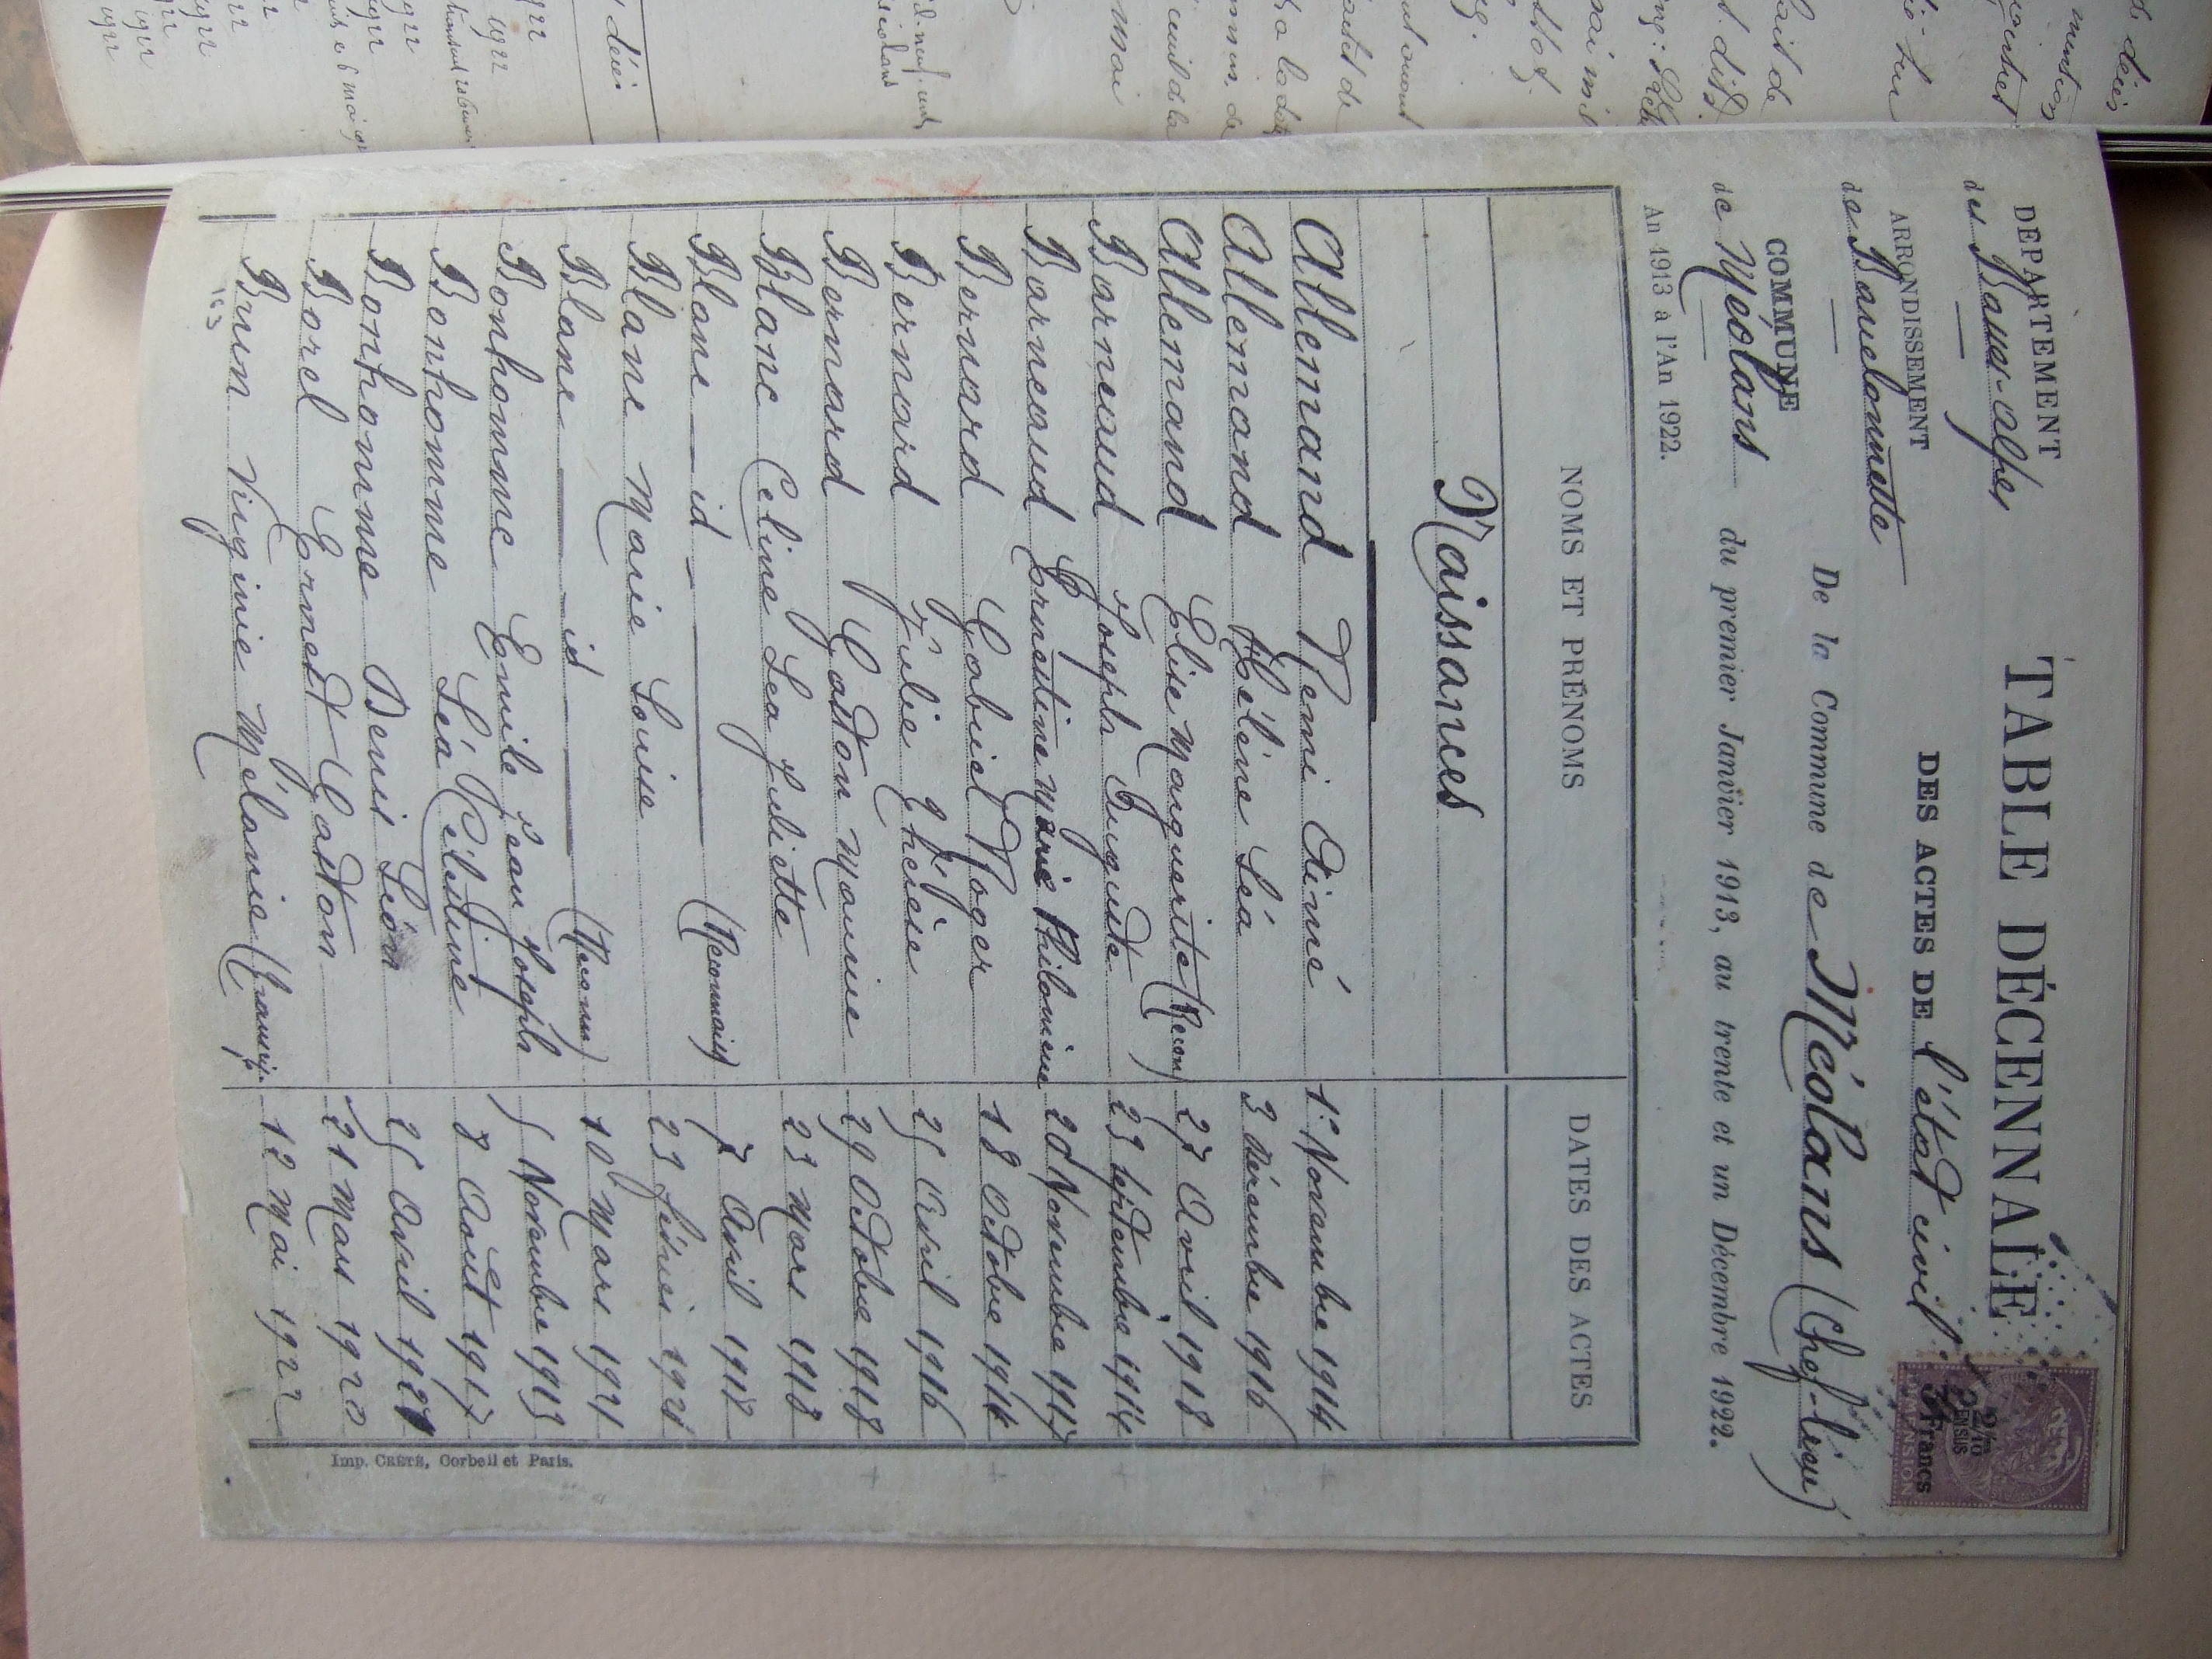 DÉPARTEMENT
des Basses-Alpes
ARRONDISSEMENT
de Barcelonnette
COMMUNE
de Méolans
An 1913 à l'An 1922.
TABLE DÉCENNALE
DES ACTES DE l'état civil
De la Commune de Méolans (Chef-lieu)
du premier Janvier 1913, au trente et un Décembre 1922.
2/10
EN SUS
3 Francs
DIMENSION
NOMS ET PRÉNOMS DATES DES ACTES
Naissances
Allemand Remi Aimé 1er Novembre 1914
Allemand Hélène Léa 3 Décembre 1916
Allemand Elise Marguerite (Recon) 27 Avril 1918
Barneaud Joseph Auguste 23 septembre 1914
Barneaud Ernestine Marie Philomène 20 Novembre 1917
Bernard Gabriel Roger 18 Octobre 1914
Bernard Julie Thérèse 25 Avril 1916
Bernard Gaston Maurice 29 Octobre 1918
Blanc Celine Lea Juliette 23 Mars 1918
Blanc id (Reconnaiss) 7 Avril 1918
Blanc Marie Louise 23 février 1921
Blanc id (Reconn) 10 Mars 1921
Bonhomme Emile Jean Joseph 5 Novembre 1913
Bonhomme Léa Clestine 8 Août 1917
Bonhomme Denis Léon 25 Avril 1921
Borel Ernest Gaston 21 Mars 1920
Brun Virginie Mélanie 12 Mai 1922
Imp. CRÉTÉ, Corbeil et Paris.